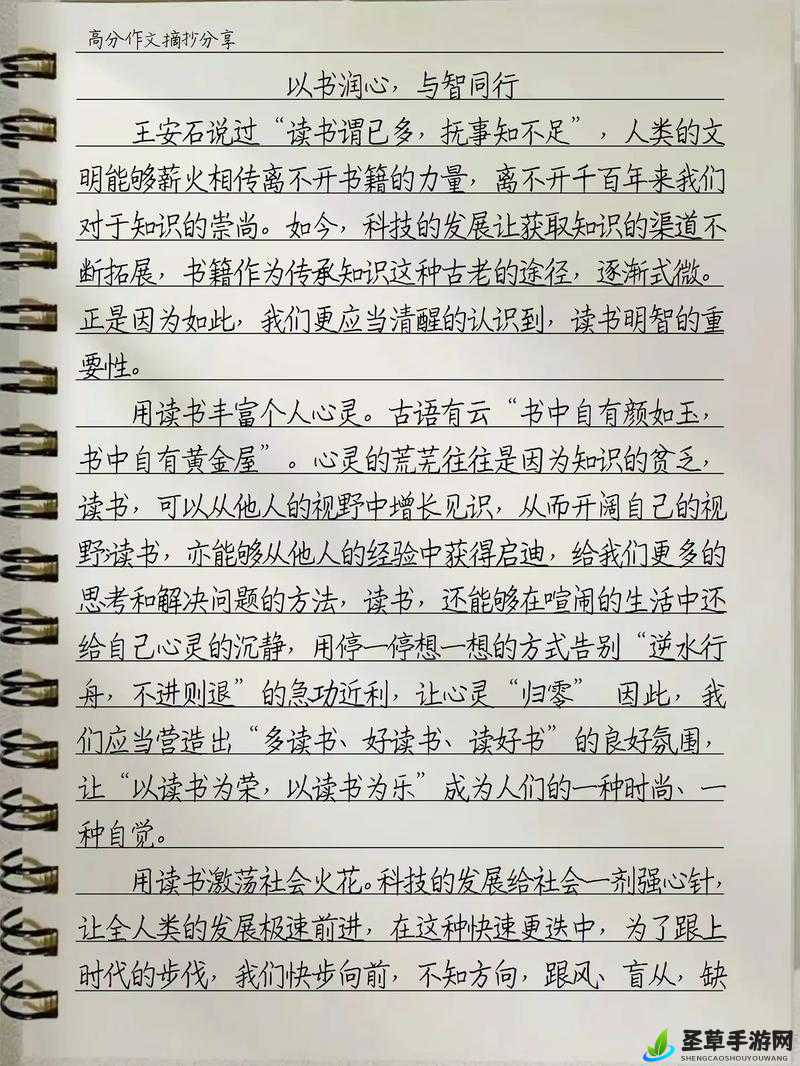 高分作文摘抄分享
以书润心，与智同行
王安石说过“读书谓已多，抚事知不足”，人类的文
明能够薪火相传离不开书籍的力量，离不开千百年来我们
对于知识的崇尚。如今，科技的发展让获取知识的渠道不
断拓展，书籍作为传承知识这种古老的途径，逐渐式微。
正是因为如此，我们更应当清醒的认识到，读书明智的重
要性。
用读书丰富个人心灵。古语有云“书中自有颜如玉，
书中自有黄金屋”。心灵的荒芜往往是因为知识的贫乏，
读书，可以从他人的视野中增长见识，从而开阔自己的视
野；读书，亦能够从他人的经验中获得启迪，给我们更多的
思考和解决问题的方法，读书，还能够在喧闹的生活中还
给自己心灵的沉静，用停一停想一想的方式告别“逆水行
舟，不进则退”的急功近利，让心灵“归零” 因此，我
们应当营造出“多读书、好读书、读好书”的良好氛围，
让“以读书为荣，以读书为乐”成为人们的一种时尚、一
种自觉。
用读书激荡社会火花。科技的发展给社会一剂强心针，
让全人类的发展极速前进，在这种快速更迭中，为了跟上
时代的步伐，我们快步向前，不知方向，跟风、盲从，缺
圣草手游网
SHENGCAOSHOUYOUWANG